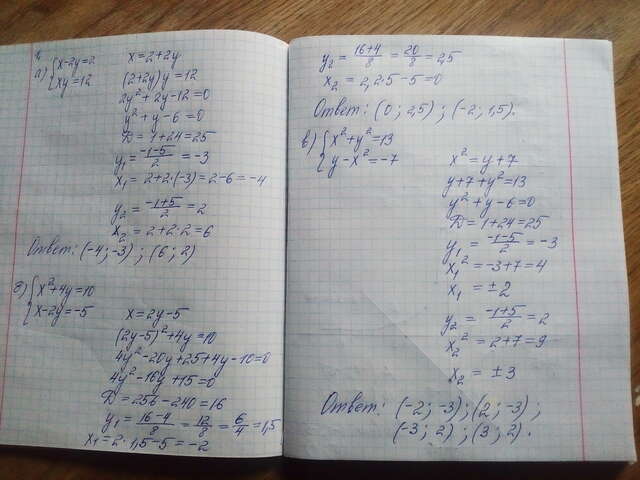 а) {x-2y=2    x=2+2y
{xy=12    (2+2y)y=12
2y²+2y-12=0
y²+y-6=0
D=1+24=25
y₁=(-1-5)/2=-3
x₁=2+2·(-3)=2-6=-4
y₂=(-1+5)/2=2
x₂=2+2·2=6
Ответ: (-4;-3); (6;2)
б) {x²+4y=10
{x-2y=-5    x=2y-5
(2y-5)²+4y=10
4y²-20y+25+4y-10=0
4y²-16y+15=0
D=256-240=16
y₁=(16-4)/8=12/8=6/4=1,5
x₁=2·1,5-5=-2
y₂=(16+4)/8=20/8=2,5
x₂=2,2·5-5=0
Ответ: (0; 2,5); (-2; 1,5).
в) {x²+y²=13
{y-x²=-7    x²=y+7
y+7+y²=13
y²+y-6=0
D=1+24=25
y₁=(-1-5)/2=-3
x₁²=-3+7=4
x₁=±2
y₂=(-1+5)/2=2
x₂²=2+7=9
x₂=±3
Ответ: (-2;-3); (2;-3);
(-3; 2); (3; 2).